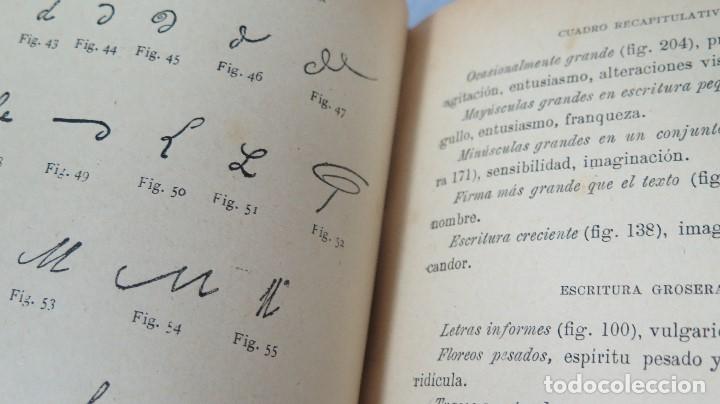 Fig. 43
Fig. 44
Fig. 45
Fig. 46
Fig. 47
Fig. 49
Fig. 50
Fig. 51
Fig. 52
M
Fig. 53
Fig. 54
Fig. 55
CUADRO RECAPITULATIV
Ocasionalmente grande (fig. 204), pr
agitación, entusiasmo, alteraciones vis
Mayúsculas grandes en escritura peq
gullo, entusiasmo, franqueza.
Minúsculas grandes en un conjunto
ra 171), sensibilidad, imaginación.
Firma más grande que el texto (fig
nombre.
Escritura creciente (fig. 138), imag
candor.
ESCRITURA GROSERA
Letras informes (fig. 100), vulgarid
Floreos pesados, espíritu pesado y
ridícula.
todocoleccion